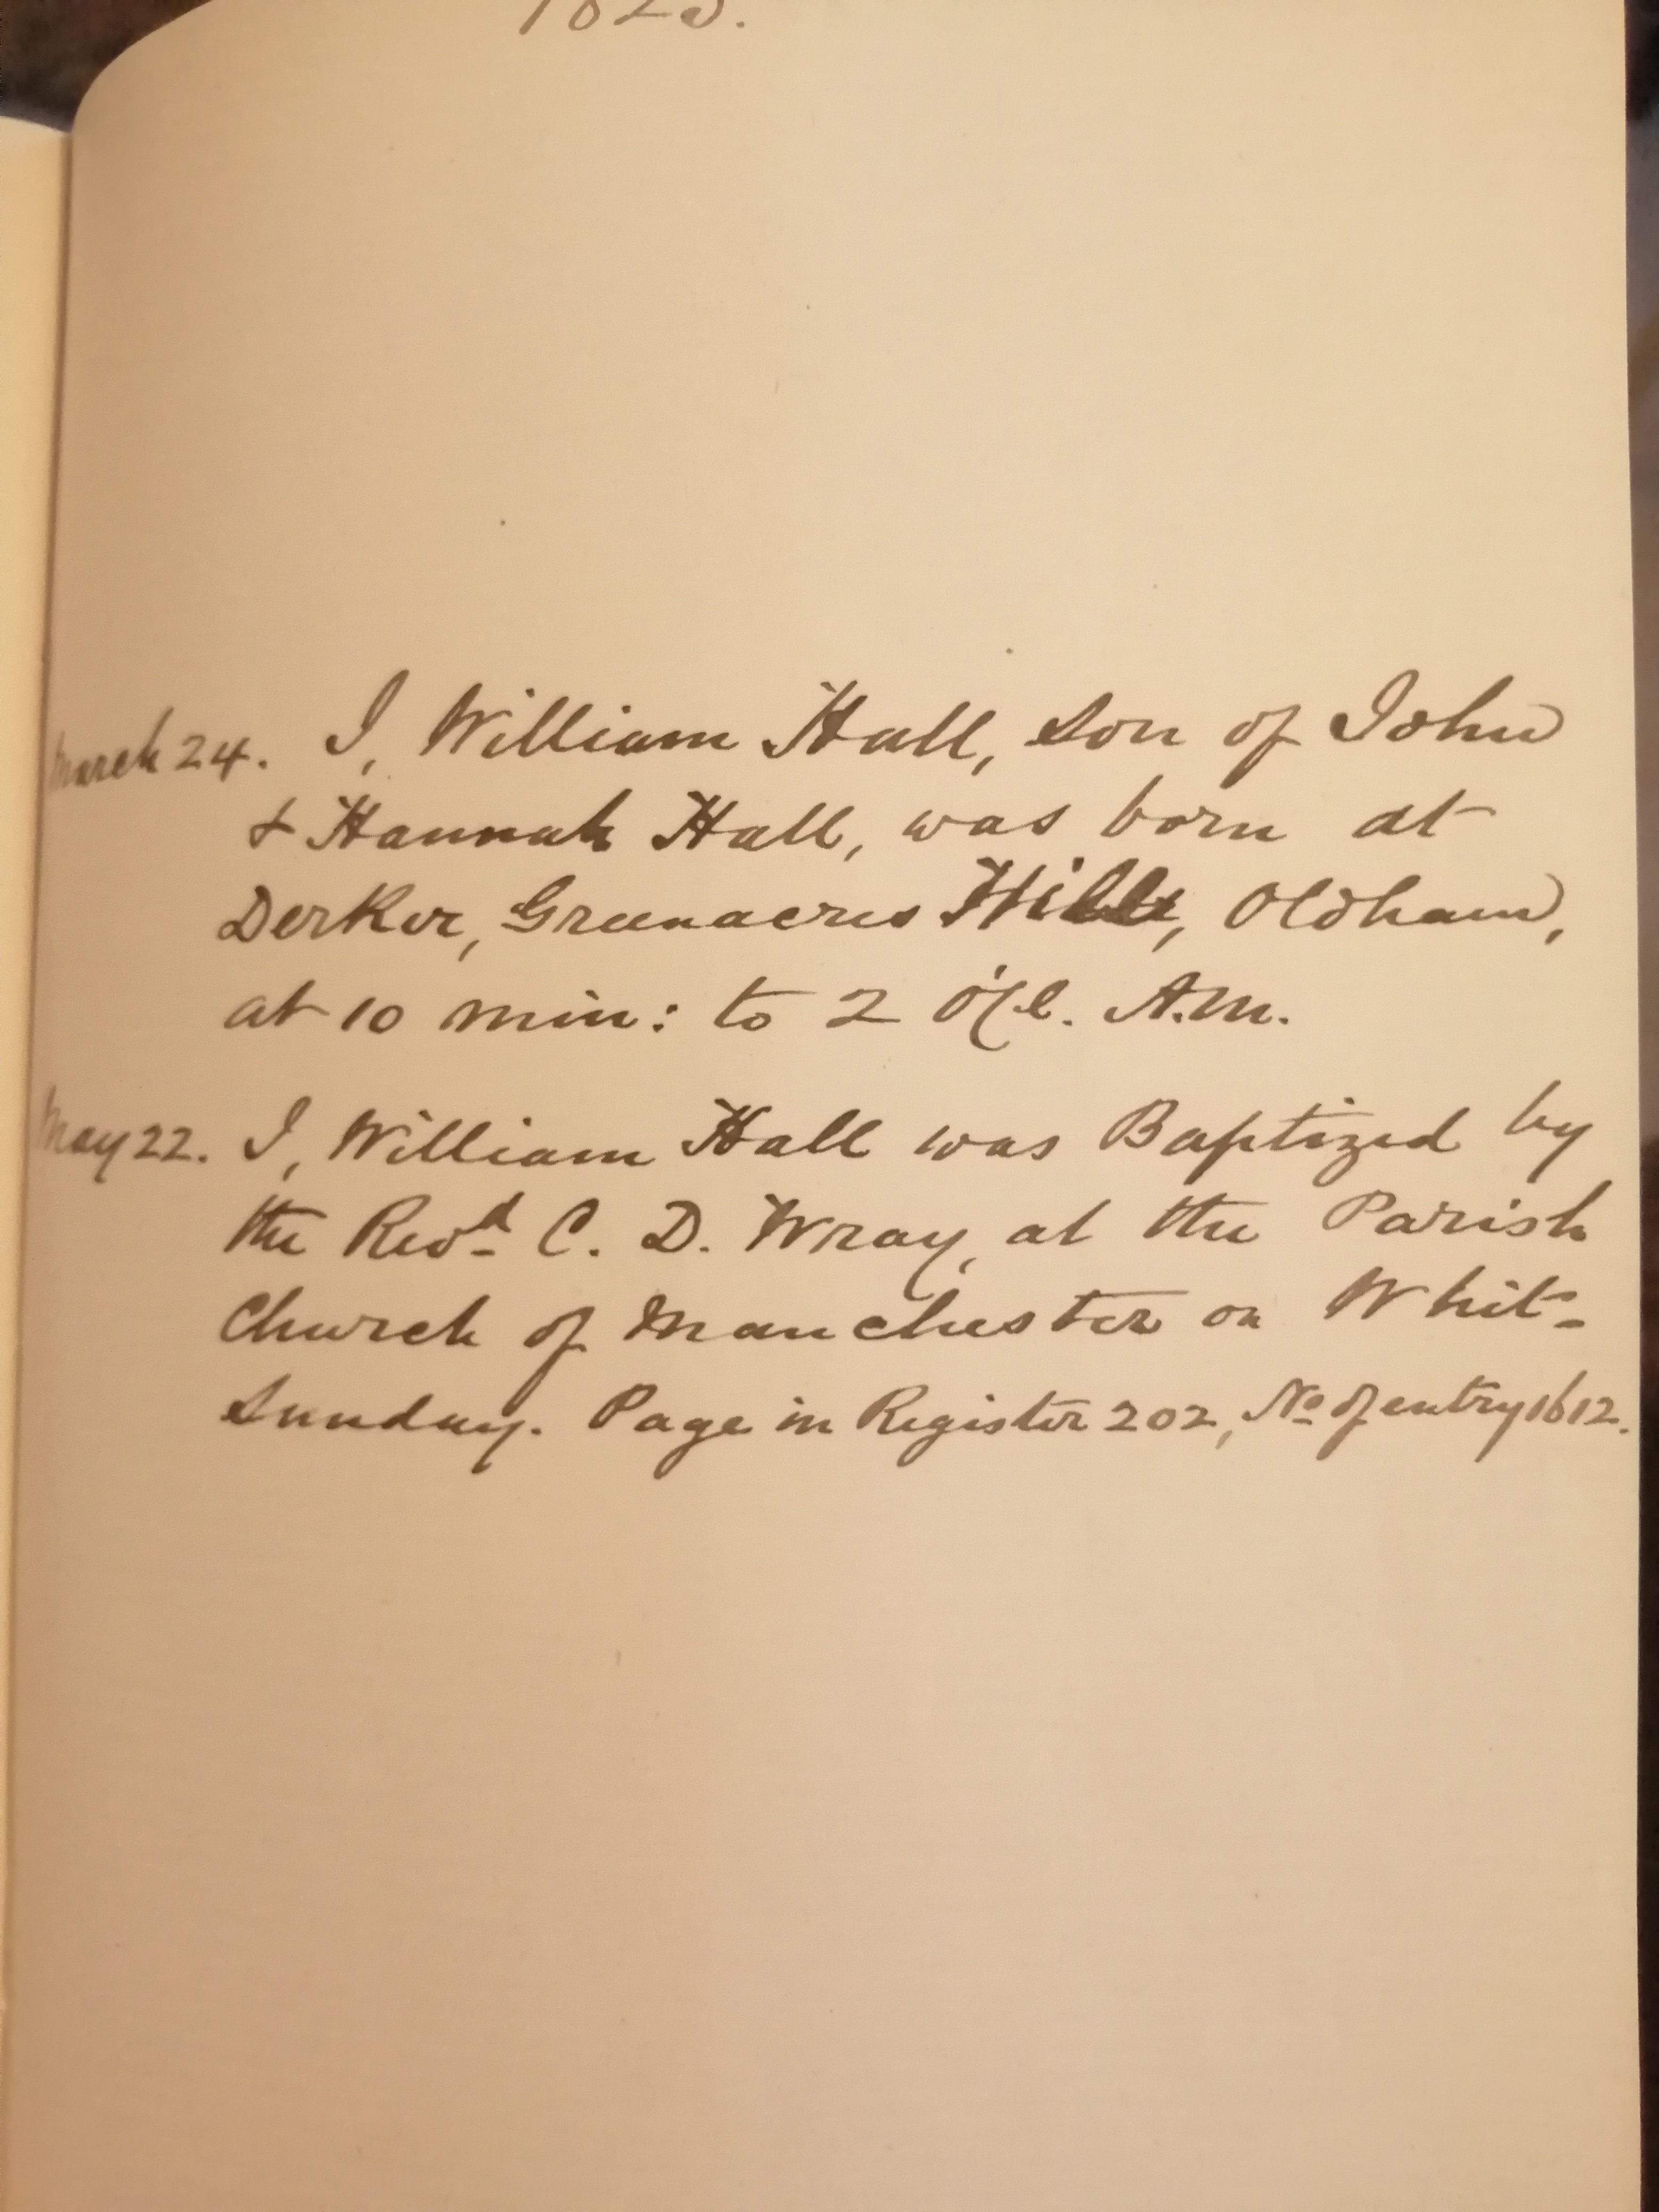 1825.
March 24. I, William Hall, son of John
& Hannah Hall, was born at
Derker, Greenacres Hill, Oldham,
at 10 min: to 2 O'Cl. A.M.
May 22. I, William Hall was Baptized by
the Revd C. D. Wray, at the Parish
Church of Manchester on Whit-
Sunday. Page in Register 202, No of entry 1612.